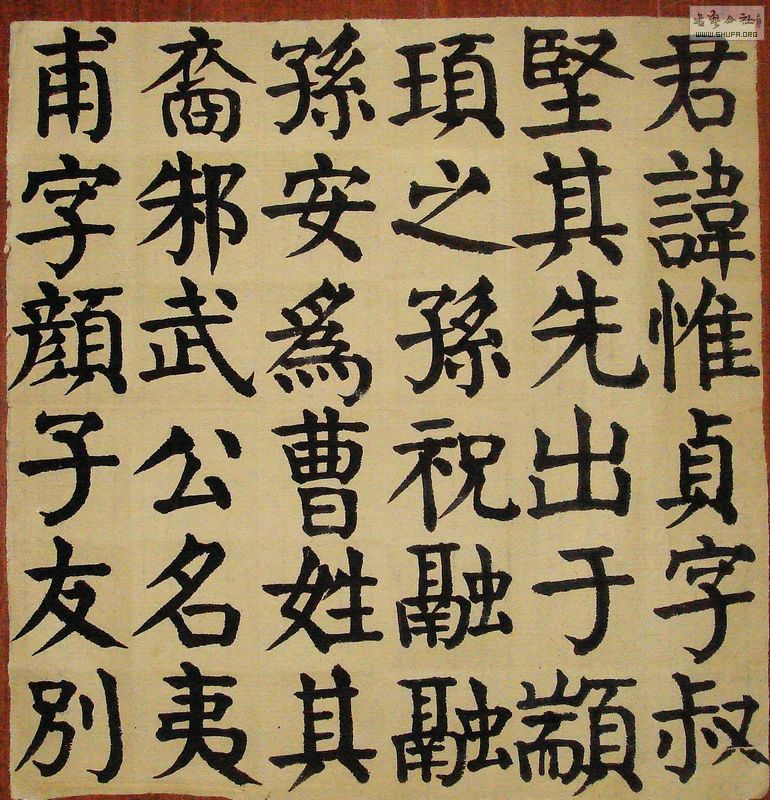 君諱惟貞字叔
堅其先出于顓
頊之孫祝融融
孫安爲曹姓其
裔邾武公名夷
甫字顔子友別
WWW.SHUFA.ORG